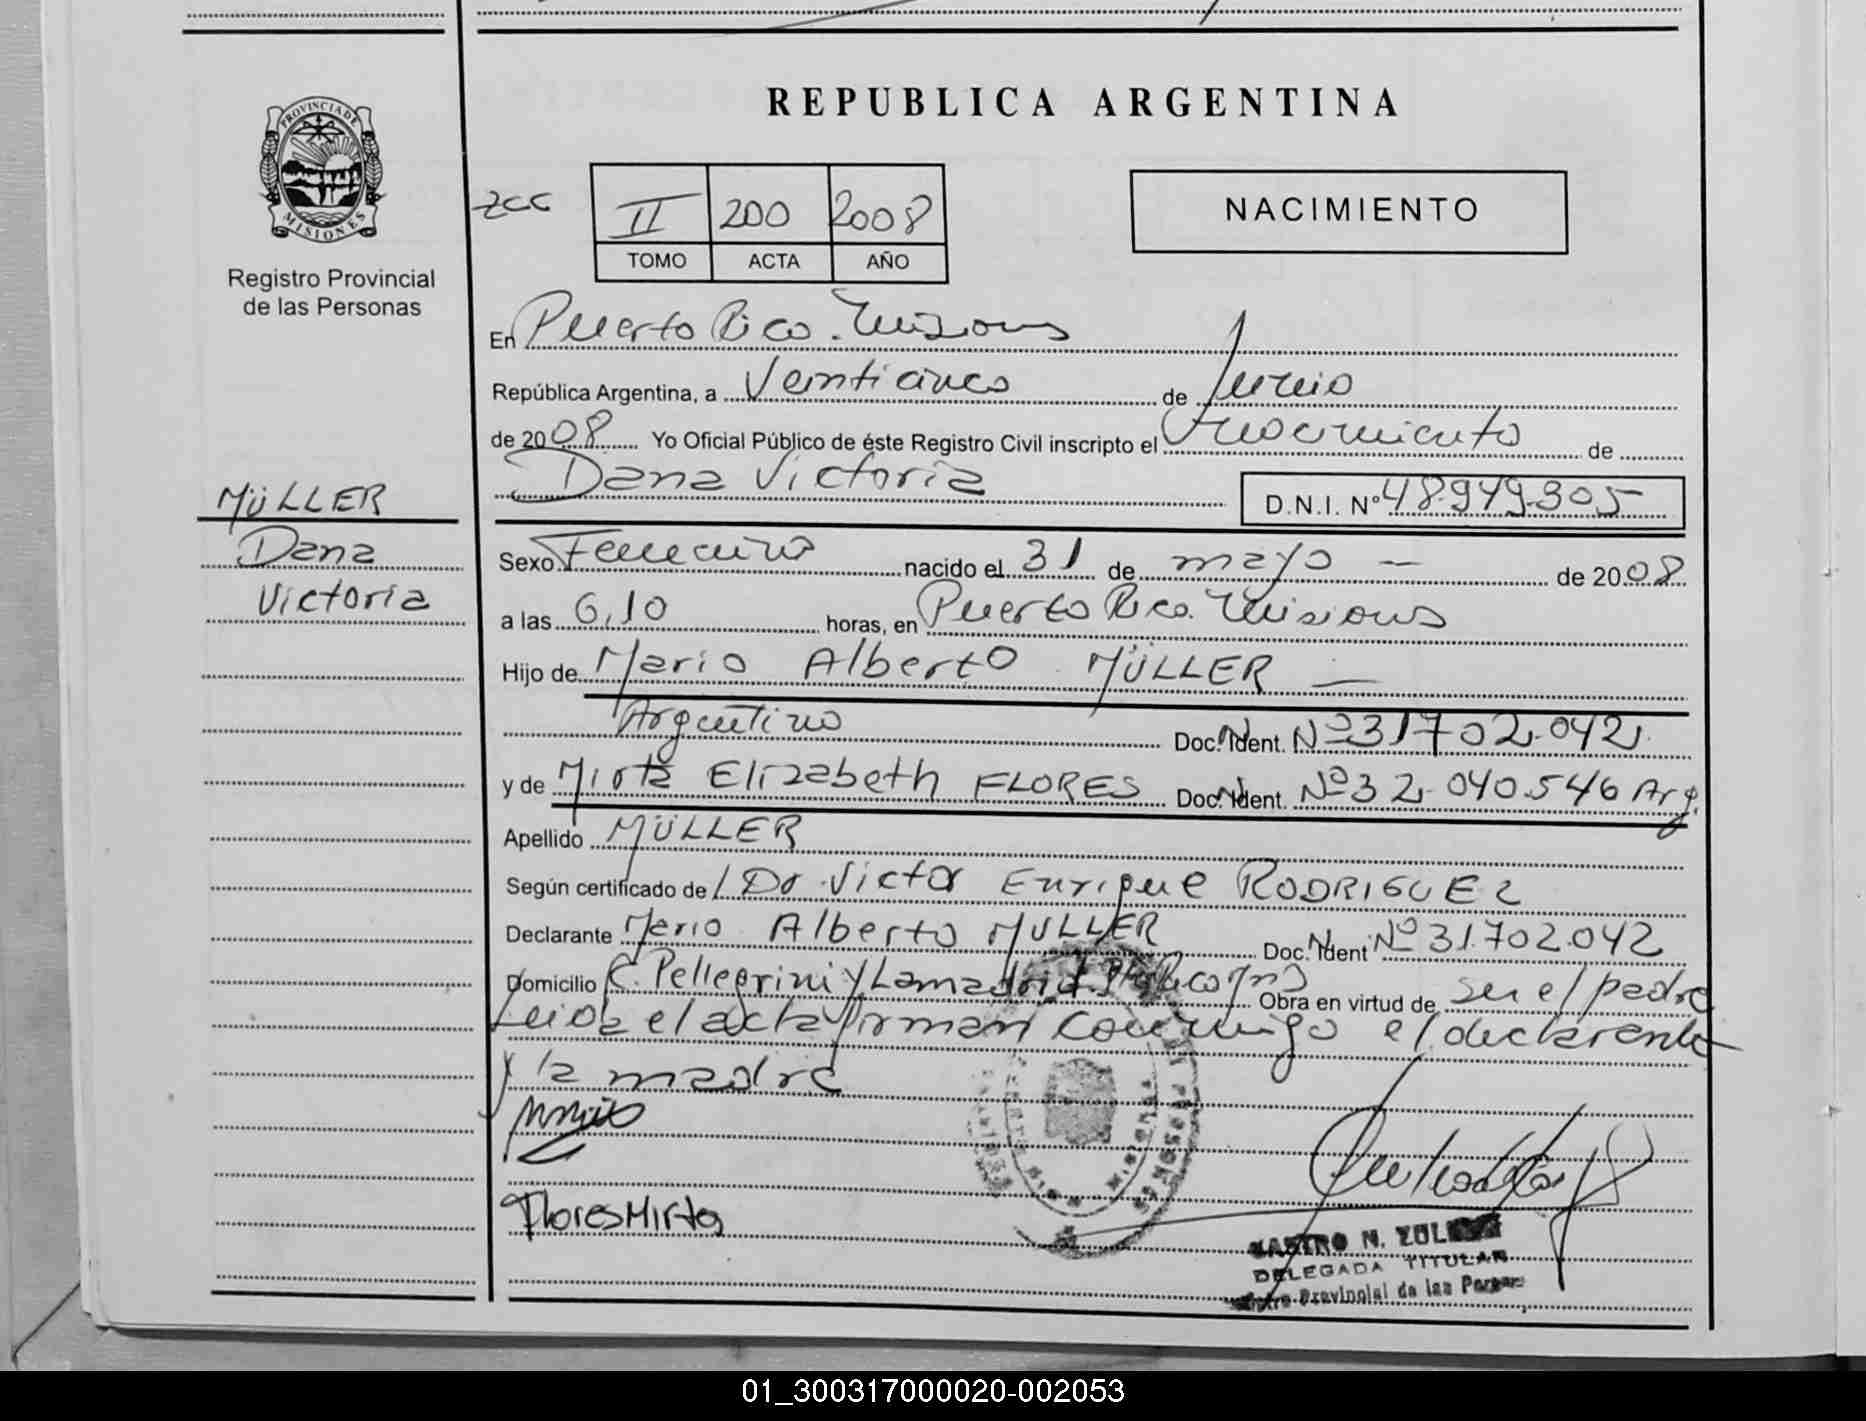 REPUBLICA ARGENTINA
PROVINCIA DE
MISIONES
Registro Provincial
de las Personas
zcc
II 200 2008
TOMO ACTA AÑO
NACIMIENTO
En Puerto Rico. Misiones
República Argentina, a Veinticinco de Junio
de 2008 Yo Oficial Público de éste Registro Civil inscripto el Nacimiento de
Dana Victoria D.N.I. Nº 48.949.305
MÜLLER
Dana
Victoria
Sexo Femenino nacido el 31 de mayo — de 2008
a las 6,10 horas, en Puerto Rico. Misiones
Hijo de Mario Alberto MÜLLER —
Argentino Doc. Ident. Nº 31702.042
y de Mirta Elizabeth FLORES Doc. Ident. Nº 32.040.546 Arg.
Apellido MÜLLER
Según certificado de Dr. Victor Enrique RODRIGUEZ
Declarante Mario Alberto MULLER Doc. Ident Nº 31.702.042
Domicilio C. Pellegrini y Lamadrid. Pto Rico Obra en virtud de ser el padre
Leida el acta firman conmigo el declarante
y la madre
Flores Mirta
CASTRO N.
DELEGADA TITULAR
Provincial de las
01_300317000020-002053